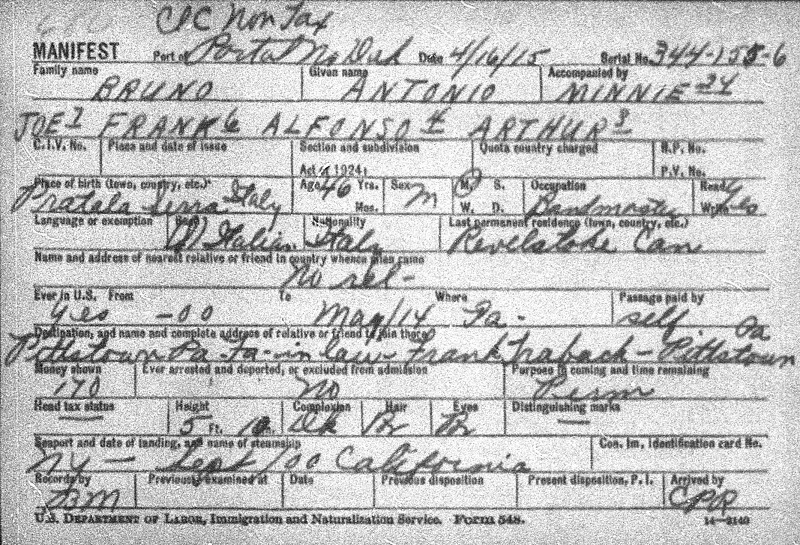 CPC Non Tax
MANIFEST Port of Portal No Dak Date 4/16/15 Serial No. 344-155-6
Family name Given name Accompanied by
BRUNO ANTONIO MINNIE 34
JOE 7 FRANK 6 ALFONSO 4 ARTHUR 3
C.I.V. No. Place and date of issue Section and subdivision Quota country charged R.P. No.
Act of 1924, P.V. No.
Place of birth (town, country, etc.) Age 46 Yrs. Sex M. S. Occupation Read Yes
Pratola Serra Italy Mos. M W. D. Bandmaster Write Yes
Language or exemption Race Nationality Last permanent residence (town, country, etc.)
Italian Italy Revelstoke Can
Name and address of nearest relative or friend in country whence alien came
No rel-
Ever in U.S. From To Where Passage paid by
Yes -00 May/14 Pa. self
Destination, and name and complete address of relative or friend to join there Pa
Pittstown Pa Fa-in law- Frank Traback - Pittstown
Money shown Ever arrested and deported, or excluded from admission Purpose in coming and time remaining
170 No Perm
Head tax status Height Complexion Hair Eyes Distinguishing marks
— 5 Ft. 10 In. Dk Br Br —
Seaport and date of landing, and name of steamship Can. Im. Identification card No.
NY — Sept/00 California
Records by Previously examined at Date Previous disposition Present disposition, P. I. Arrived by
BM CPR
U.S. DEPARTMENT OF LABOR, Immigration and Naturalization Service. Form 548. 14—2140